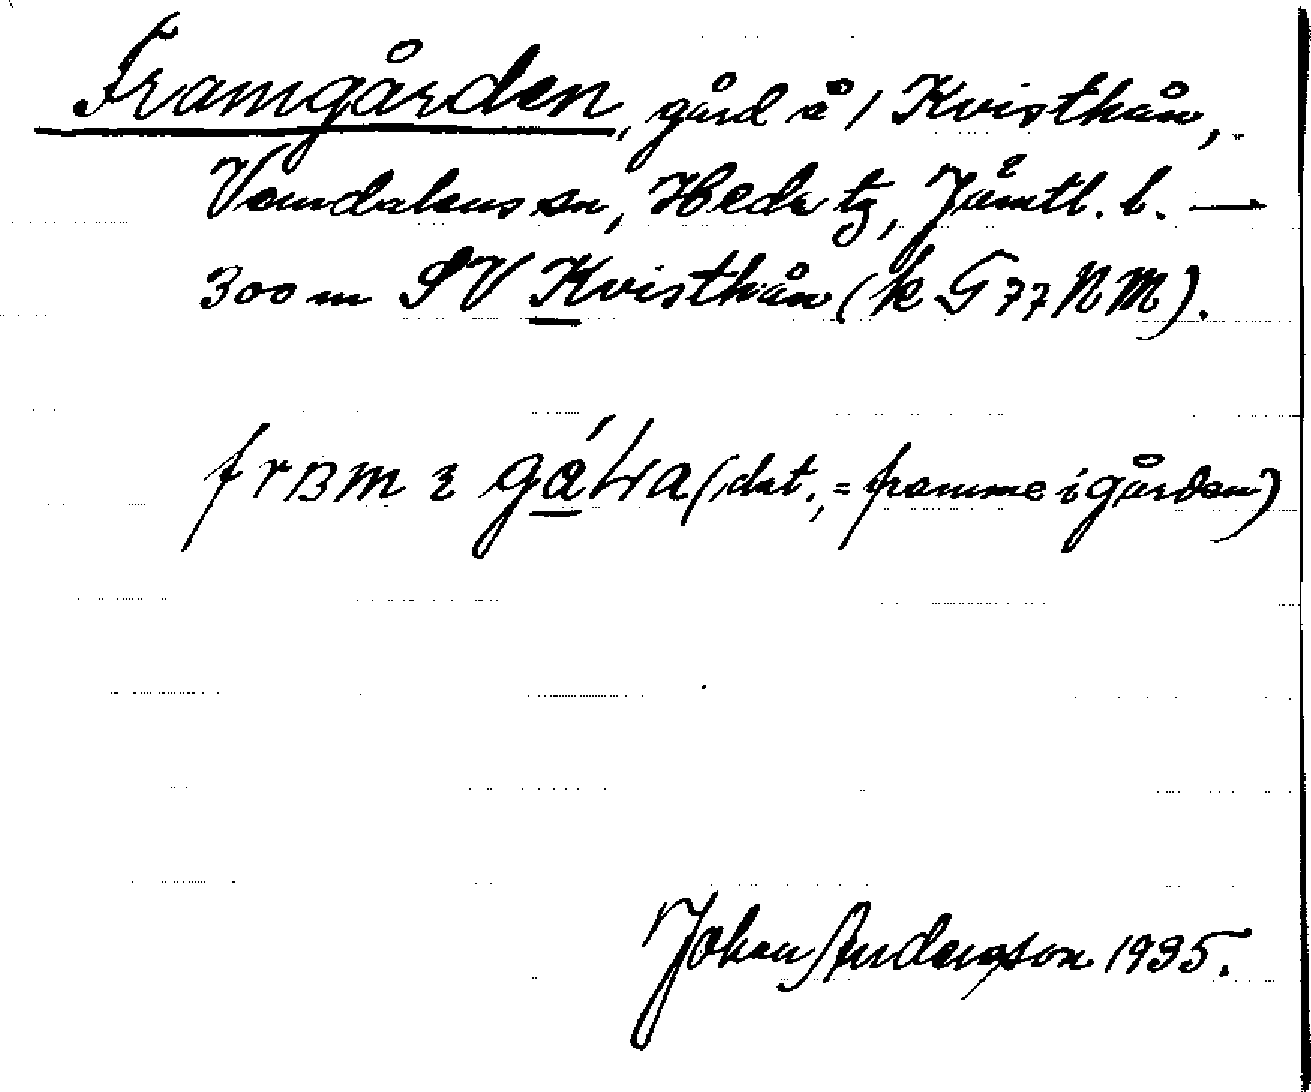 Framgården, gård å 1 Kvisthån,
Vemdalens sn, Hede tg, Jämtl. l. —
300 m SV Kvisthån (k G 77 NM).
(dat., = framme i gården)
Johan Anderson 1935.